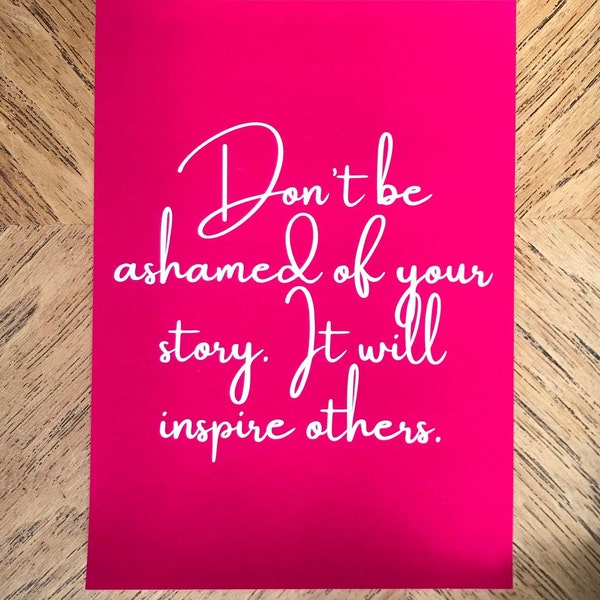 Don't be
ashamed of your
story. It will
inspire others.